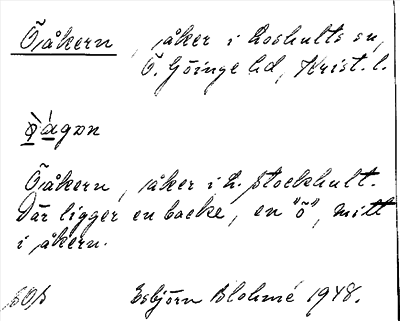 Öåkern, åker i Loshults sn,
Ö. Göinge hd, Krist. l.
Öåkern, åker i L. Stockhult.
Där ligger en backe, en "ö", mitt
i åkern.
Esbjörn Blohmé 1948.